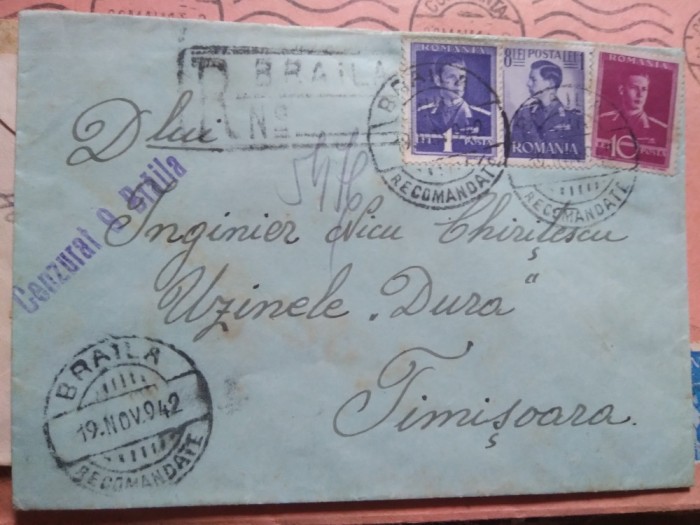 R BRAILA
Nº
5416
ROMANIA
LEI 1 POSTA
8 LEI POSTA LEI
ROMANIA
ROMANIA
LEI 10 POSTA
BRAILA
RECOMANDATE
RECOMANDATE
Dlui
Cenzurat 9 Brăila
Inginier Nicu Chirițescu
Uzinele „Dura"
Timișoara.
BRAILA
19.NOV.942
RECOMANDATE